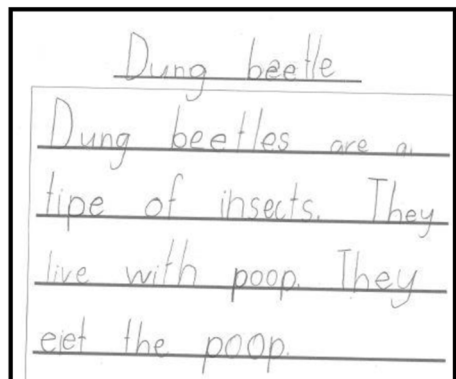 Dung beetle
Dung beetles are a
tipe of insects. They
live with poop. They
eiet the poop.